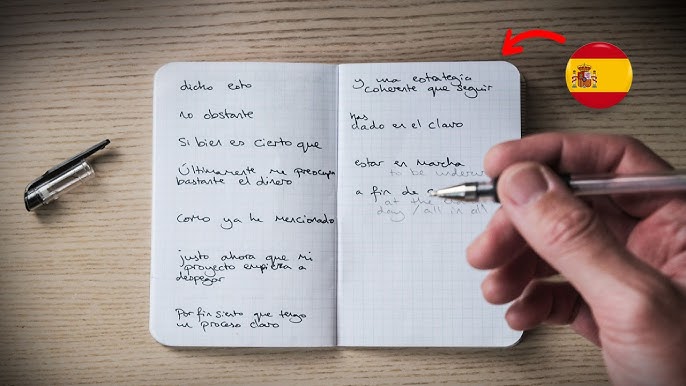 dicho esto
no obstante
Si bien es cierto que
Últimamente me preocupa
bastante el dinero
Como ya he mencionado
justo ahora que mi
proyecto empieza a
despegar
Por fin siento que tengo
un proceso claro
y una estrategia
coherente que seguir
has
dado en el clavo
estar en marcha
to be underway
a fin de
at the
day / all in all